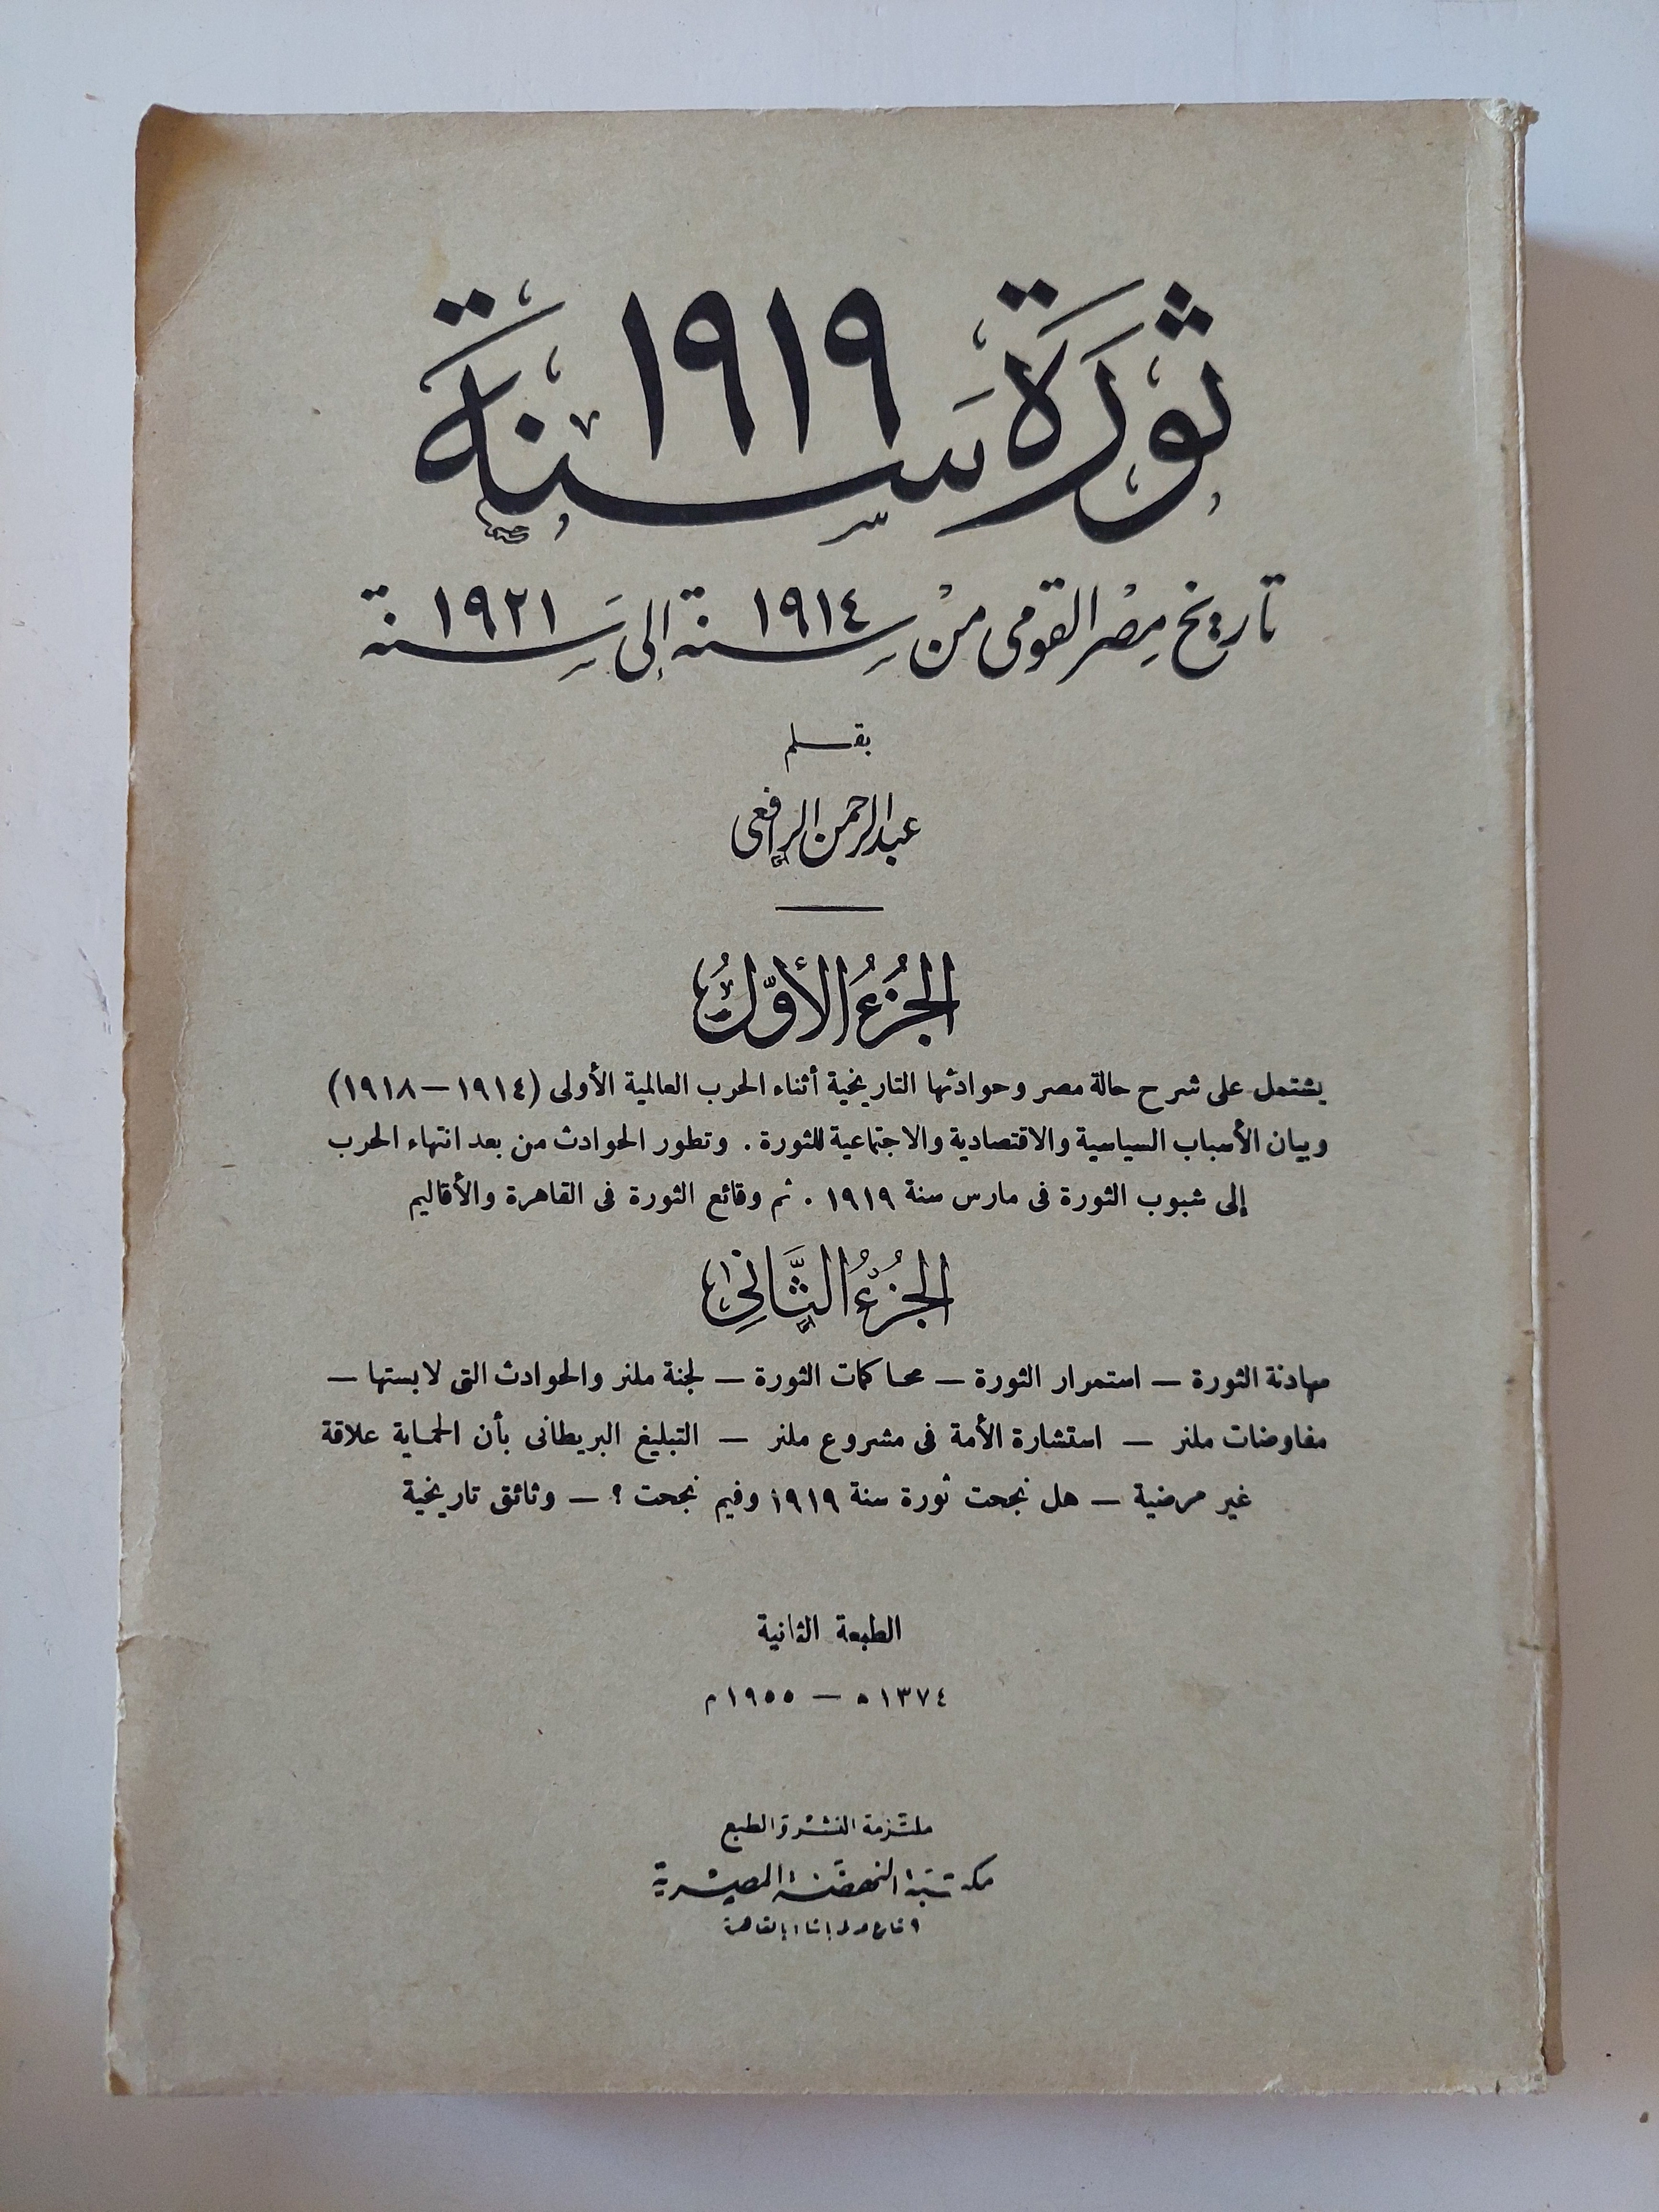 ثورة سنة ١٩١٩
تاريخ مصر القومى من سنة ١٩١٤ إلى سنة ١٩٢١
بقلم
عبد الرحمن الرافعى
الجُزءُ الأوّلُ
يشتمل على شرح حالة مصر وحوادثها التاريخية أثناء الحرب العالمية الأولى (١٩١٤ — ١٩١٨)
وبيان الأسباب السياسية والاقتصادية والاجتماعية للثورة . وتطور الحوادث من بعد انتهاء الحرب
إلى شبوب الثورة فى مارس سنة ١٩١٩ . ثم وقائع الثورة فى القاهرة والأقاليم
الجُزءُ الثَّانِى
مهادنة الثورة — استمرار الثورة — محاكمات الثورة — لجنة ملنر والحوادث التى لابستها —
مفاوضات ملنر — استشارة الأمة فى مشروع ملنر — التبليغ البريطانى بأن الحماية علاقة
غير مرضية — هل نجحت ثورة سنة ١٩١٩ وفيم نجحت ؟ — وثائق تاريخية
الطبعة الثانية
١٣٧٤ ه — ١٩٥٥ م
ملتزمة النشر والطبع
مكتبة النهضة المصرية
٩ شارع عدلى باشا بالقاهرة